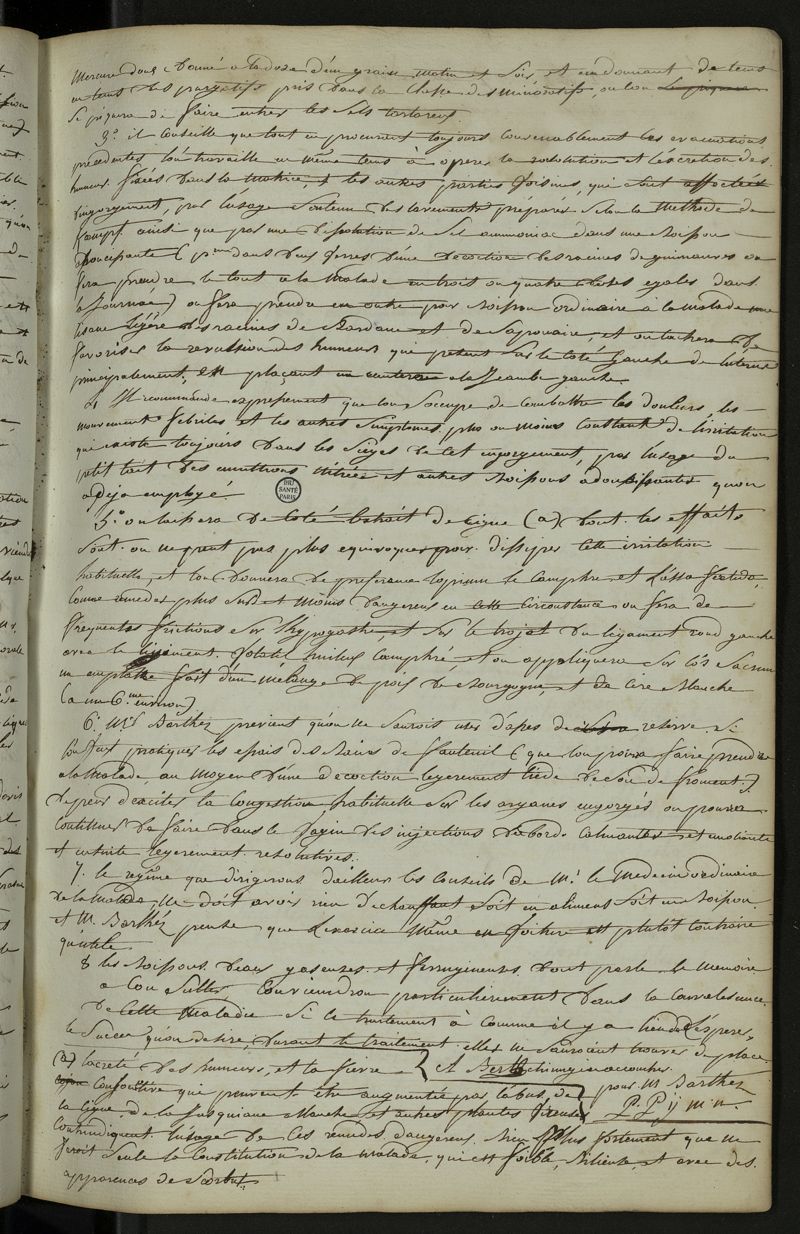 Mercure doux donné a la doze d'un grain matin et soir, et en donnant de tems
en tems des purgatifs pris dans la classe des minoratifs, ou l'on
se piquera de faire entrer les sels tartareux.
3.º il Conseille que tout en procurant toujours convenablement les evacuations
précedentes l'on travaille en même tems à operer la resolution et l'éxcretion des
humeurs fixées dans la matrice, et les autres parties voisines, qui sont affectées
d'engorgement, par l'usage soutenu des lavements préparés selon la methode de
Kampf. ainsi que par une dissolution de sel ammoniac dans une boisson
dans deux verres d'une decoction des racines de guimauves on
fera prendre le tout a la malade en trois ou quatre doses egales dans
la journée) on fera prendre en outre par boisson ordinaire à la malade une
tisane légére des racines de Bardane et de saponaire, et on tachera de
favoriser la revulsion des humeurs qui portent sur le coté gauche de l'uterus
principalement, en plaçant un cautere a la jambe gauche.
4 Il recommande expressement que l'on s'occupe de combattre les douleurs, les
mouvement febriles et les autres simptomes, plus ou moins constants de l'irritation
qui existe toujours dans les sièges de cet engorgement, par l'usage du
petit lait des emultions nitrées et autres boissons adoucissantes qu'on
a deja employé.
BIU
SANTÉ
PARIS
5.º on laissera de coté l'extrait de cigue (a) dont les effets
sont on ne peut pas plus equivoques pour dissiper cette irritation
habituelle, et l'on donnera de preferance l'opium le camphre et l'assa foetida,
comme remedes plus surs et moins dangereux en cette circonstance on fera de
frequentes frictions sur l'hypogastre et sur le trajet du ligament rond gauche
avec le liniment volatil camphré, et on appliquera sur l'os sacrum
un emplatre fait d'un mélange de poix de Bourgogne, et de cire blanche
(a un 6.me environ)
6.º Mr. Barthez previent qu'on ne sauroit user d'assez de reserve. si
l'on veut pratiquer les essais des bains de fauteuil (que l'on pourra faire prendre
a la malade, au moyen d'une decoction legerement tiede de son de froment)
de peur d'exciter la congestion habituelle sur les organes engorgés on pourra
continuer de faire dans le vagin des injections d'abord calmantes et emolientes
et ensuite legerement resolutives.
7. le regime que dirigerons d'ailleurs les conseils de Mr. le medecin ordinaire
de la malade, ne doit avoir rien d'echauffant soit en aliment soit en boisson
et M. Barthéz pense que l'exercice même en voiture est plutôt contraire
qu'utile.
8 les boissons d'eaux gaseuzes et ferrugineuses dont parle le memoire
a consulter conviendron particulierement dans la convalescence
de cette maladie si le traitement à comme il y a lieu de l'esperer,
le succés qu'on desire, durant le traitement elles ne sauroient trouver de place.
A Berth chirurgien accoucheur.
pour M Barthez
P. P
(a) l'acreté des humeurs, et la fievre
consomtive qui peuvent être augmentée par l'abus de
la cigue, de la jusquiame blanche et autres plantes vireuses
contrindiquent l'usage de ces remedes dangereux, bien plus fortement que ne
feroit seule la constitution de la malade, qui est foible, bilieuse, et avec des
apparences de scorbut.